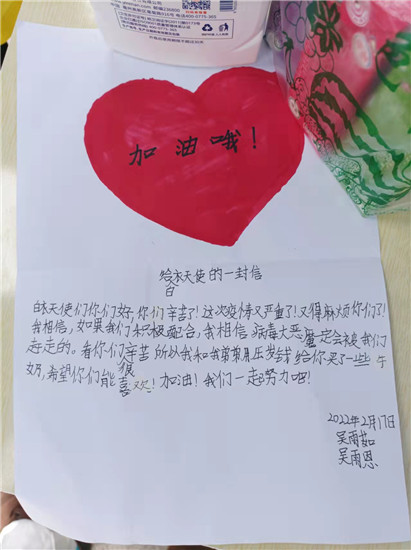 加油哦！
给白衣天使的一封信
白衣天使们你们好,你们辛苦了!这次疫情又严重了!又得麻烦你们了!
我相信,如果我们积极配合,我相信病毒大恶魔定会被我们
赶走的。看你们很辛苦所以我和弟弟用压岁钱给你买了一些牛
奶,希望你们能喜欢!加油!我们一起努力吧!
2022年2月17日
吴雨茹
吴雨恩